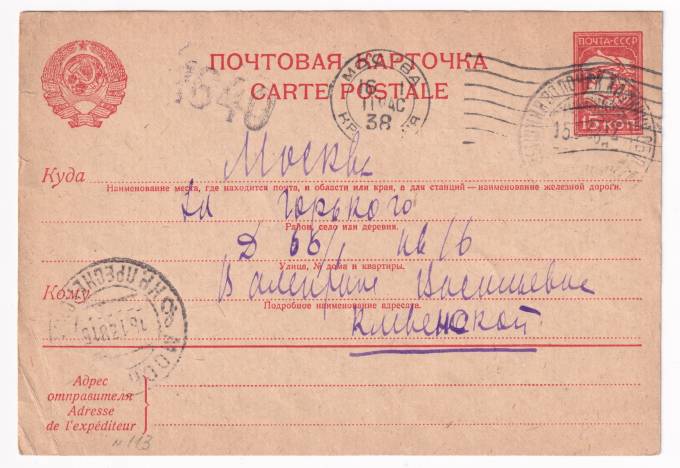 ПОЧТОВАЯ КАРТОЧКА
CARTE POSTALE
ПОЧТА-СССР
15 КОП
1640
МОСКВА
16 1
11 ЧАС
38
Куда Москва
Наименование места, где находится почта, и области или края, а для станций — наименование железной дороги.
Ул Горького
Район, село или деревня.
Д 55/1 кв 16
Улица, № дома и квартиры.
Кому Валентине Васильевне
Подробное наименование адресата.
Кливенской
Адрес
отправителя
Adresse
de l'expéditeur
№ 113